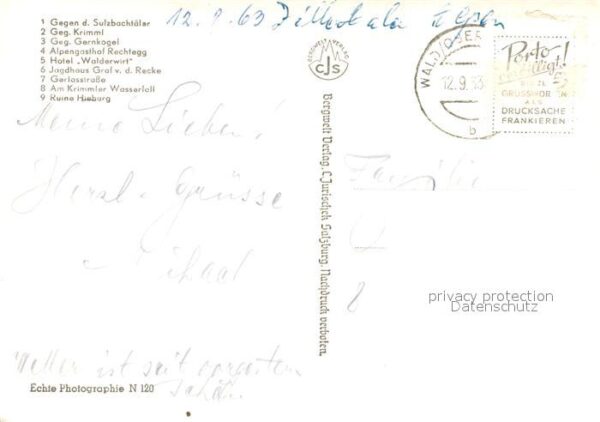 1 Gegen d. Sulzbachtäler
2 Geg. Krimml
3 Geg. Gernkogel
4 Alpengasthof Rechtegg
5 Hotel „Walderwirt"
6 Jagdhaus Graf v. d. Recke
7 Gerlosstraße
8 Am Krimmler Wasserfall
9 Ruine Hieburg
12.9.63
BERGWELT VERLAG
CJS
Bergwelt Verlag, C. Jurischek Salzburg. Nachdruck verboten.
12.9.63
b
Porto!
GRUSSWOR
ALS
DRUCKSACHE
FRANKIEREN
Meine Lieben!
Herzl. Grüsse
Familie
8
privacy protection
Datenschutz
Wetter ist seit gestern
Echte Photographie N 120